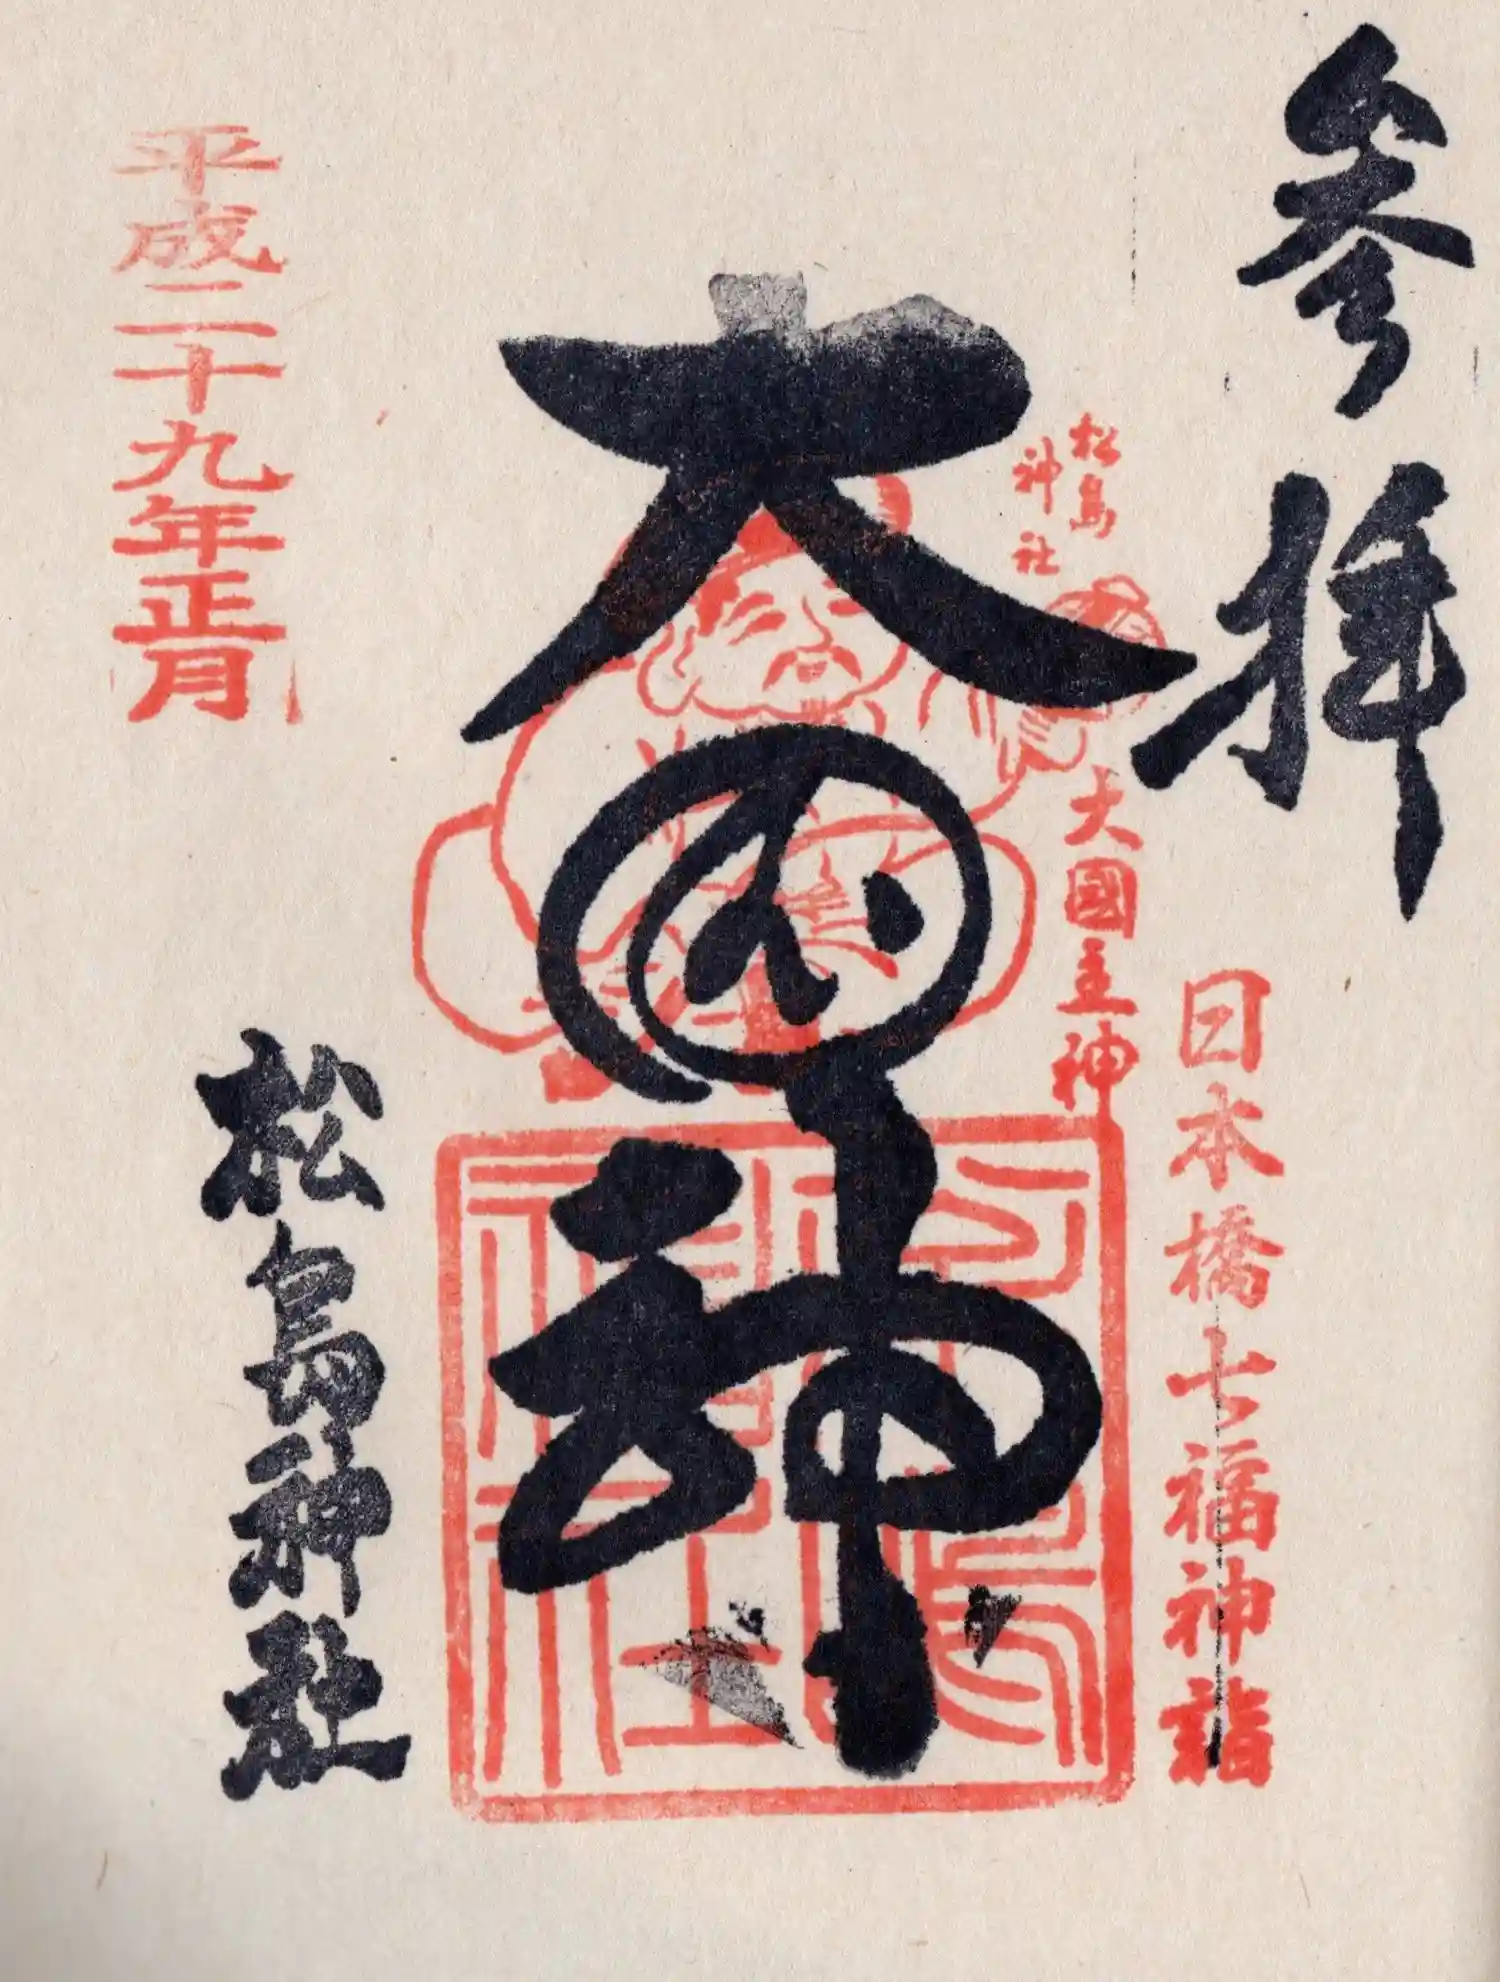 参拝
日本橋七福神詣
松島
神社
大國主神
大国神
松島
神社
松島神社
平成二十九年正月